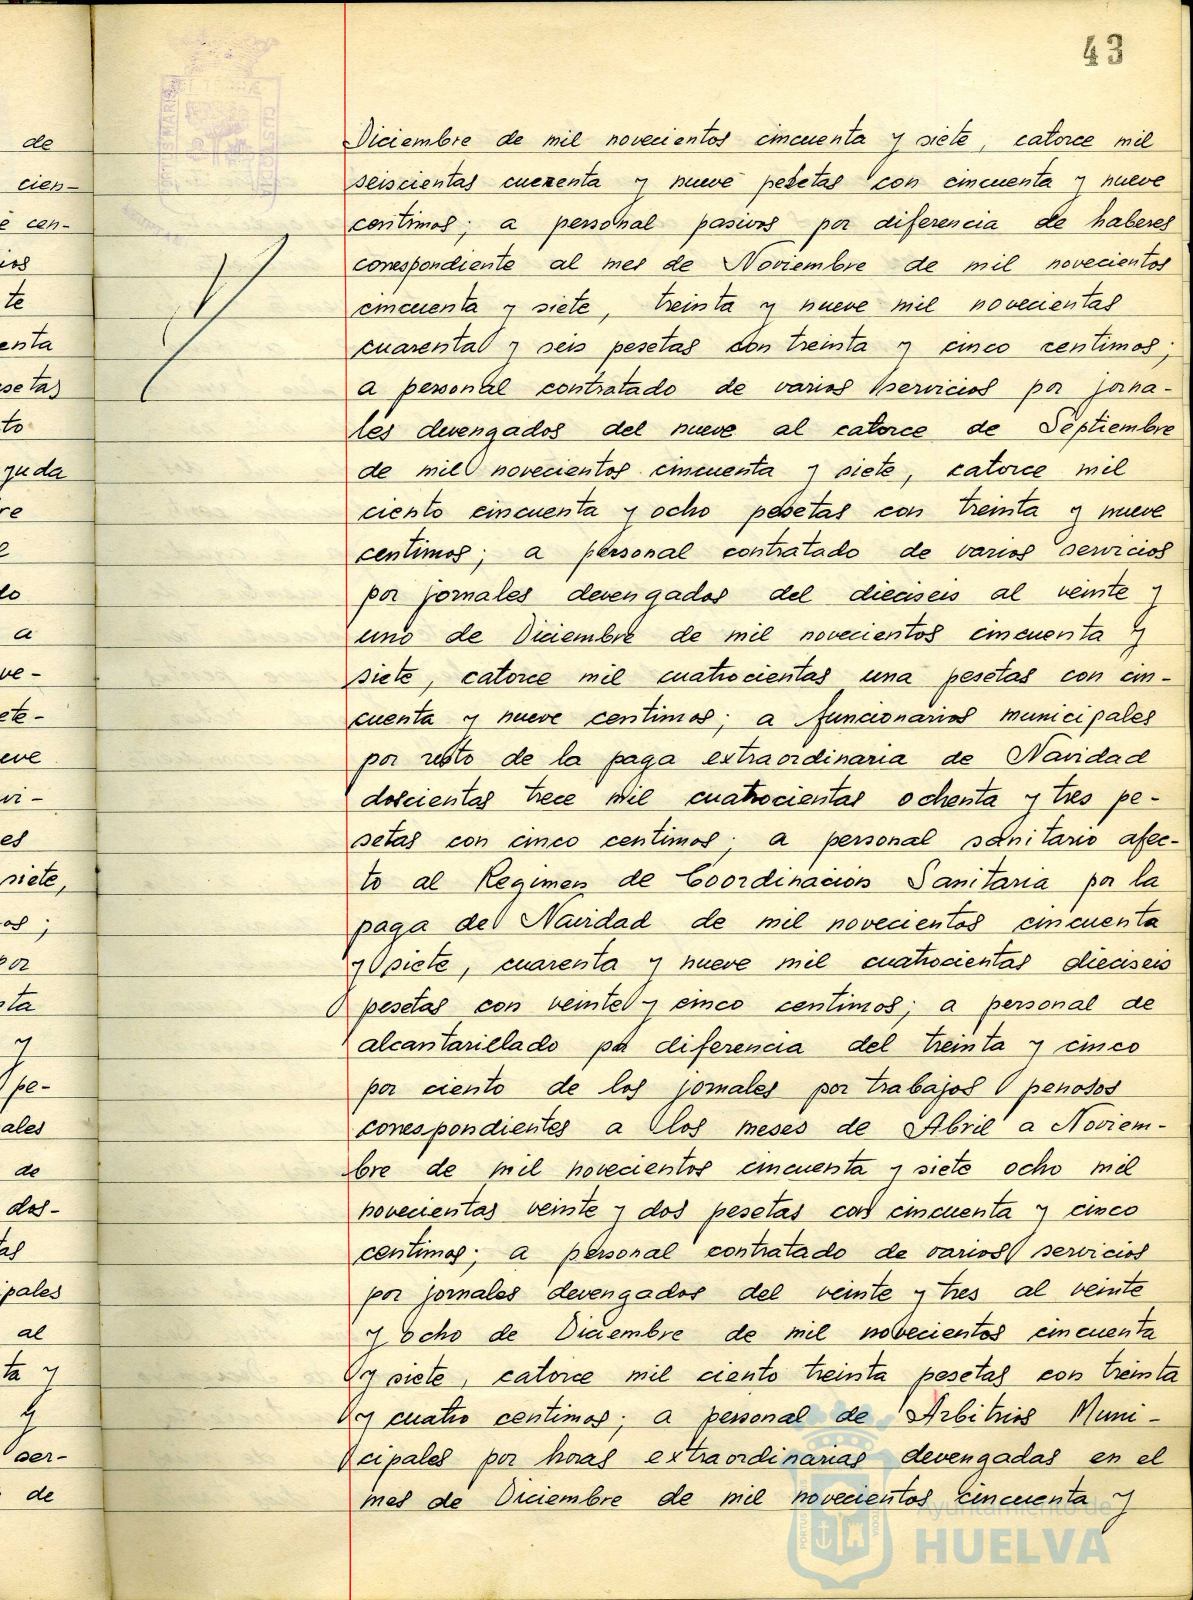 43
Diciembre de mil novecientos cincuenta y siete, catorce mil
seiscientas cuerenta y nueve pesetas con cincuenta y nueve
centimos; a personal pasivos por diferencia de haberes
correspondiente al mes de Noviembre de mil novecientos
cincuenta y siete, treinta y nueve mil novecientas
cuarenta y seis pesetas con treinta y cinco centimos;
a personal contratado de varios servicios por jorna-
les devengados del nueve al catorce de Septiembre
de mil novecientos cincuenta y siete, catorce mil
ciento cincuenta y ocho pesetas con treinta y nueve
centimos; a personal contratado de varios servicios
por jornales devengados del dieciseis al veinte y
uno de Diciembre de mil novecientos cincuenta y
siete, catorce mil cuatrocientas una pesetas con cin-
cuenta y nueve centimos; a funcionarios municipales
por resto de la paga extraordinaria de Navidad
doscientas trece mil cuatrocientas ochenta y tres pe-
setas con cinco centimos; a personal sanitario afec-
to al Regimen de Coordinación Sanitaria por la
paga de Navidad de mil novecientos cincuenta
y siete, cuarenta y nueve mil cuatrocientas dieciseis
pesetas con veinte y cinco centimos; a personal de
alcantarillado por diferencia del treinta y cinco
por ciento de los jornales por trabajos penosos
correspondientes a los meses de Abril a Noviem-
bre de mil novecientos cincuenta y siete ocho mil
novecientas veinte y dos pesetas con cincuenta y cinco
centimos; a personal contratado de varios servicios
por jornales devengados del veinte y tres al veinte
y ocho de Diciembre de mil novecientos cincuenta
y siete, catorce mil ciento treinta pesetas con treinta
y cuatro centimos; a personal de Arbitrios Muni-
cipales por horas extraordinarias devengadas en el
mes de Diciembre de mil novecientos cincuenta y
de
cien-
cen-
te
enta
setas
to
yuda
re
do
a
ve-
ete-
eve
vi-
es
siete,
os;
por
ta
y
pe-
ales
de
dos-
tas
ipales
al
ta y
y
ser-
de
Ayuntamiento de
HUELVA